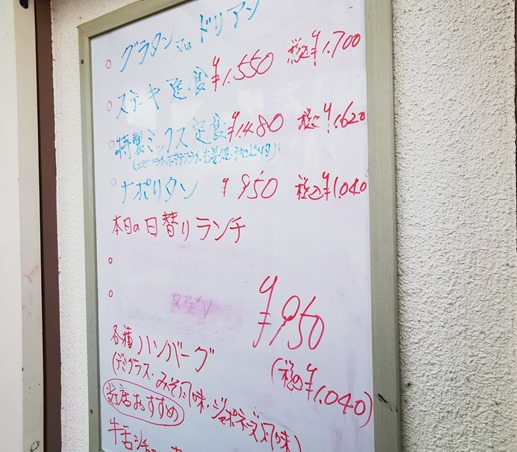 グラタン or ドリアン
ステーキ定食 ¥1,550 税込¥1,700
特製ミックス定食 ¥1,480 税込¥1,620
ナポリタン ¥950 税込¥1,040
本日の日替りランチ
¥950
(税込¥1,040)
各種ハンバーグ
(デミグラス・みそ風味・ジャポネーズ風味)
当店おすすめ
牛舌シチュー